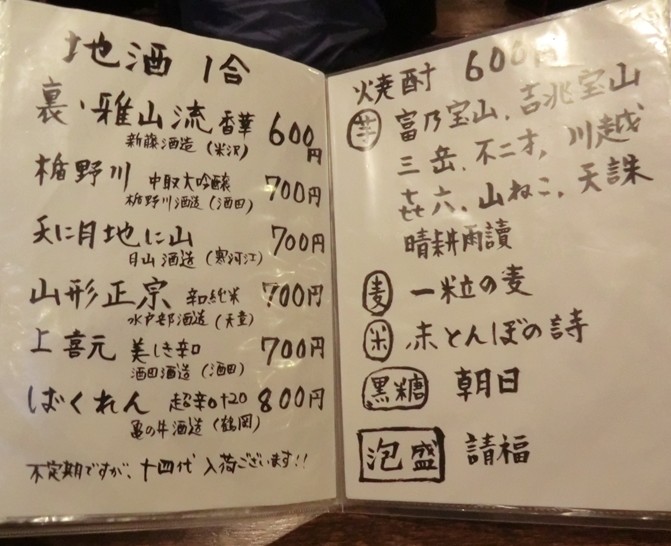 地酒 1合
裏・雅山流 香華 600円
新藤酒造(米沢)
楯野川 中取大吟醸 700円
楯野川酒造(酒田)
天に月地に山 700円
月山酒造(寒河江)
山形正宗 辛口純米 700円
水戸部酒造(天童)
上喜元 美しき辛口 700円
酒田酒造(酒田)
ばくれん 超辛口+20 800円
亀の井酒造(鶴岡)
不定期ですが、十四代 入荷ございます!!
火焼酎 600円
芋 富乃宝山、吉兆宝山
三岳、不二才、川越
㐂六、山ねこ、天誅
晴耕雨讀
麦 一粒の麦
米 赤とんぼの詩
黒糖 朝日
泡盛 請福